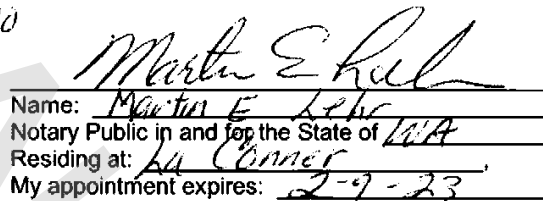 Martin E Lehr
Name: Martin E Lehr
Notary Public in and for the State of WA
Residing at: La Conner,
My appointment expires: 2-9-23